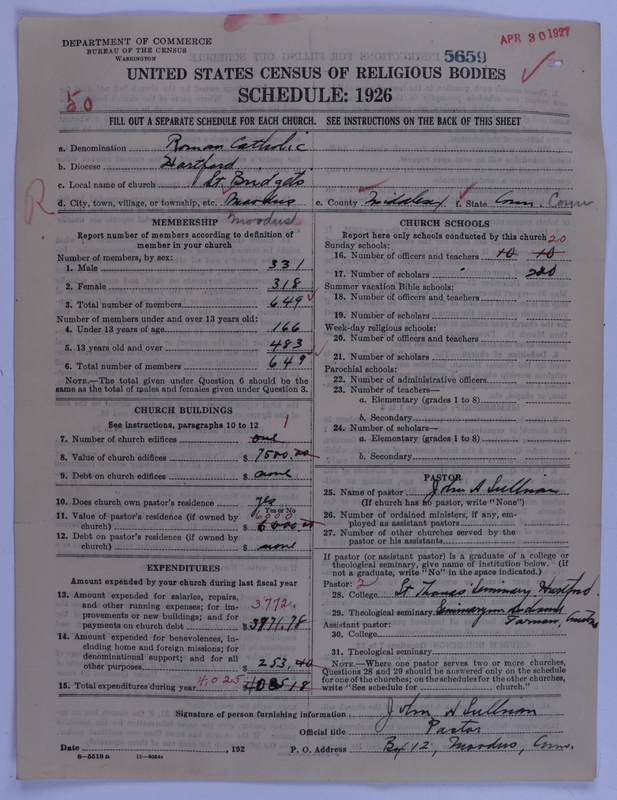 DEPARTMENT OF COMMERCE
BUREAU OF THE CENSUS
WASHINGTON
5659
APR 30 1927
UNITED STATES CENSUS OF RELIGIOUS BODIES
SCHEDULE: 1926
50
FILL OUT A SEPARATE SCHEDULE FOR EACH CHURCH. SEE INSTRUCTIONS ON THE BACK OF THIS SHEET
a. Denomination Roman Catholic
b. Diocese Hartford
c. Local name of church St. Bridgets
R
d. City, town, village, or township, etc. Moodus e. County Middlesex f. State Conn. Conn
Moodus
MEMBERSHIP
Report number of members according to definition of
member in your church
Number of members, by sex:
1. Male 331
2. Female 318
3. Total number of members 649
Number of members under and over 13 years old:
4. Under 13 years of age 166
5. 13 years old and over 483
6. Total number of members 649
NOTE.—The total given under Question 6 should be the
same as the total of males and females given under Question 3.
CHURCH BUILDINGS
See instructions, paragraphs 10 to 12
1
7. Number of church edifices one
8. Value of church edifices $ 7500.00
9. Debt on church edifices $ none
10. Does church own pastor's residence yes
Yes or No
11. Value of pastor's residence (if owned by
church) $ 6000.00
6000
12. Debt on pastor's residence (if owned by
church) $ none
EXPENDITURES
Amount expended by your church during last fiscal year
13. Amount expended for salaries, repairs,
and other running expenses; for im-
provements or new buildings; and for
payments on church debt $ 3771.78
3772
14. Amount expended for benevolences, in-
cluding home and foreign missions; for
denominational support; and for all
other purposes $ 253.40
15. Total expenditures during year 4,025
CHURCH SCHOOLS
Report here only schools conducted by this church
20
Sunday schools:
16. Number of officers and teachers 10 10
17. Number of scholars 220
Summer vacation Bible schools:
18. Number of officers and teachers
19. Number of scholars
Week-day religious schools:
20. Number of officers and teachers
21. Number of scholars
Parochial schools:
22. Number of administrative officers
23. Number of teachers—
a. Elementary (grades 1 to 8)
b. Secondary
24. Number of scholars—
a. Elementary (grades 1 to 8)
b. Secondary
PASTOR
25. Name of pastor John A Sullivan
(If church has no pastor, write "None")
26. Number of ordained ministers, if any, em-
ployed as assistant pastors
27. Number of other churches served by the
pastor or his assistants
If pastor (or assistant pastor) is a graduate of a college or
theological seminary, give name of institution below. (If
not a graduate, write "No" in the space indicated.)
Pastor: 2
28. College St Thomas Seminary Hartford.
29. Theological seminary Seminary
Assistant pastor:
30. College
31. Theological seminary
NOTE.—Where one pastor serves two or more churches,
Questions 28 and 29 should be answered only on the schedule
for one of the churches; on the schedules for the other churches,
write "See schedule for church."
Signature of person furnishing information John A Sullivan
Official title Pastor
Date , 192 P. O. Address Box 12, Moodus, Conn.
8—5518a 11—9024a